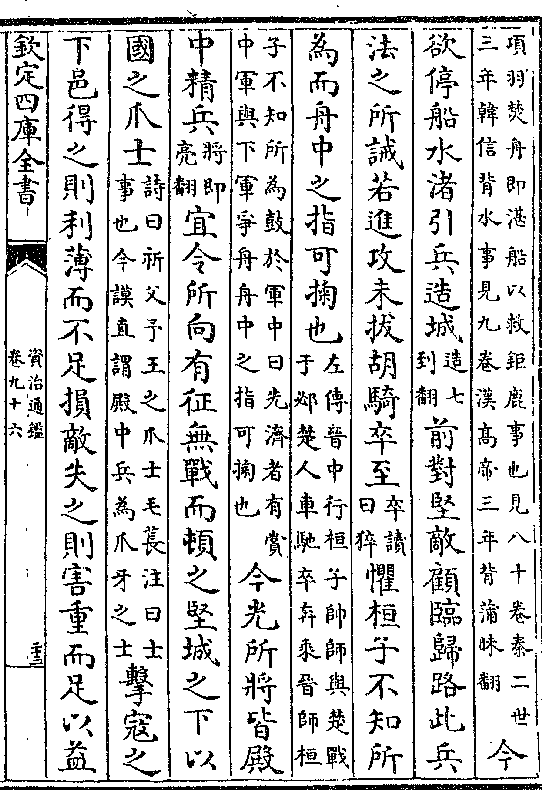 項羽焚舟即湛船以救鉅鹿事也見八十卷秦二世
三年韓信背水事見九卷漢髙帝三年背蒲昧翻
今
欲停船水渚引兵造城
造七
到翻
前對堅敵顧臨歸路此兵
法之所誡若進攻未拔胡騎卒至
卒讀
曰猝
懼桓子不知所
為而舟中之指可掬也
左傳晉中行桓子帥師與楚戰
于邲楚人車馳卒奔乗晉師桓
子不知所為鼓於軍中曰先濟者有賞
中軍與下軍爭舟舟中之指可掬也
今光所將皆殿
中精兵
將即
亮翻
宜令所向有征無戰而頓之堅城之下以
國之爪士
詩曰祈父予王之爪士毛萇注曰士
事也今謨直謂殿中兵為爪牙之士
擊寇之
下邑得之則利薄而不足損敵失之則害重而足以益
欽定四庫全書
資治通鑑
卷九十六
二十三